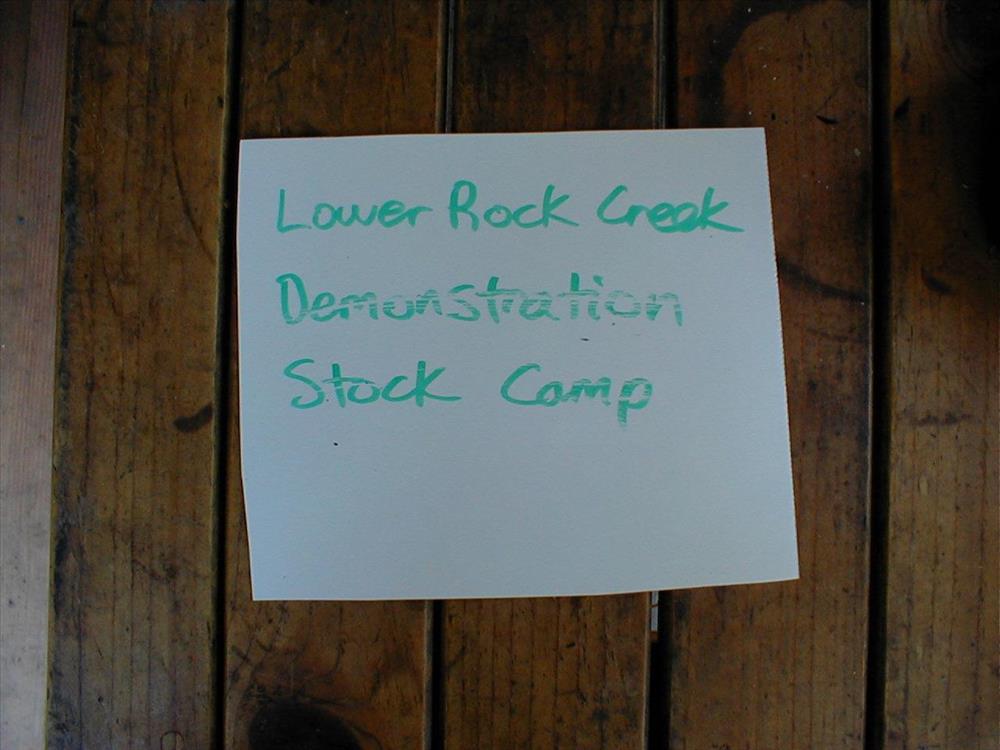 Lower Rock Creek
Demonstration
Stock Camp